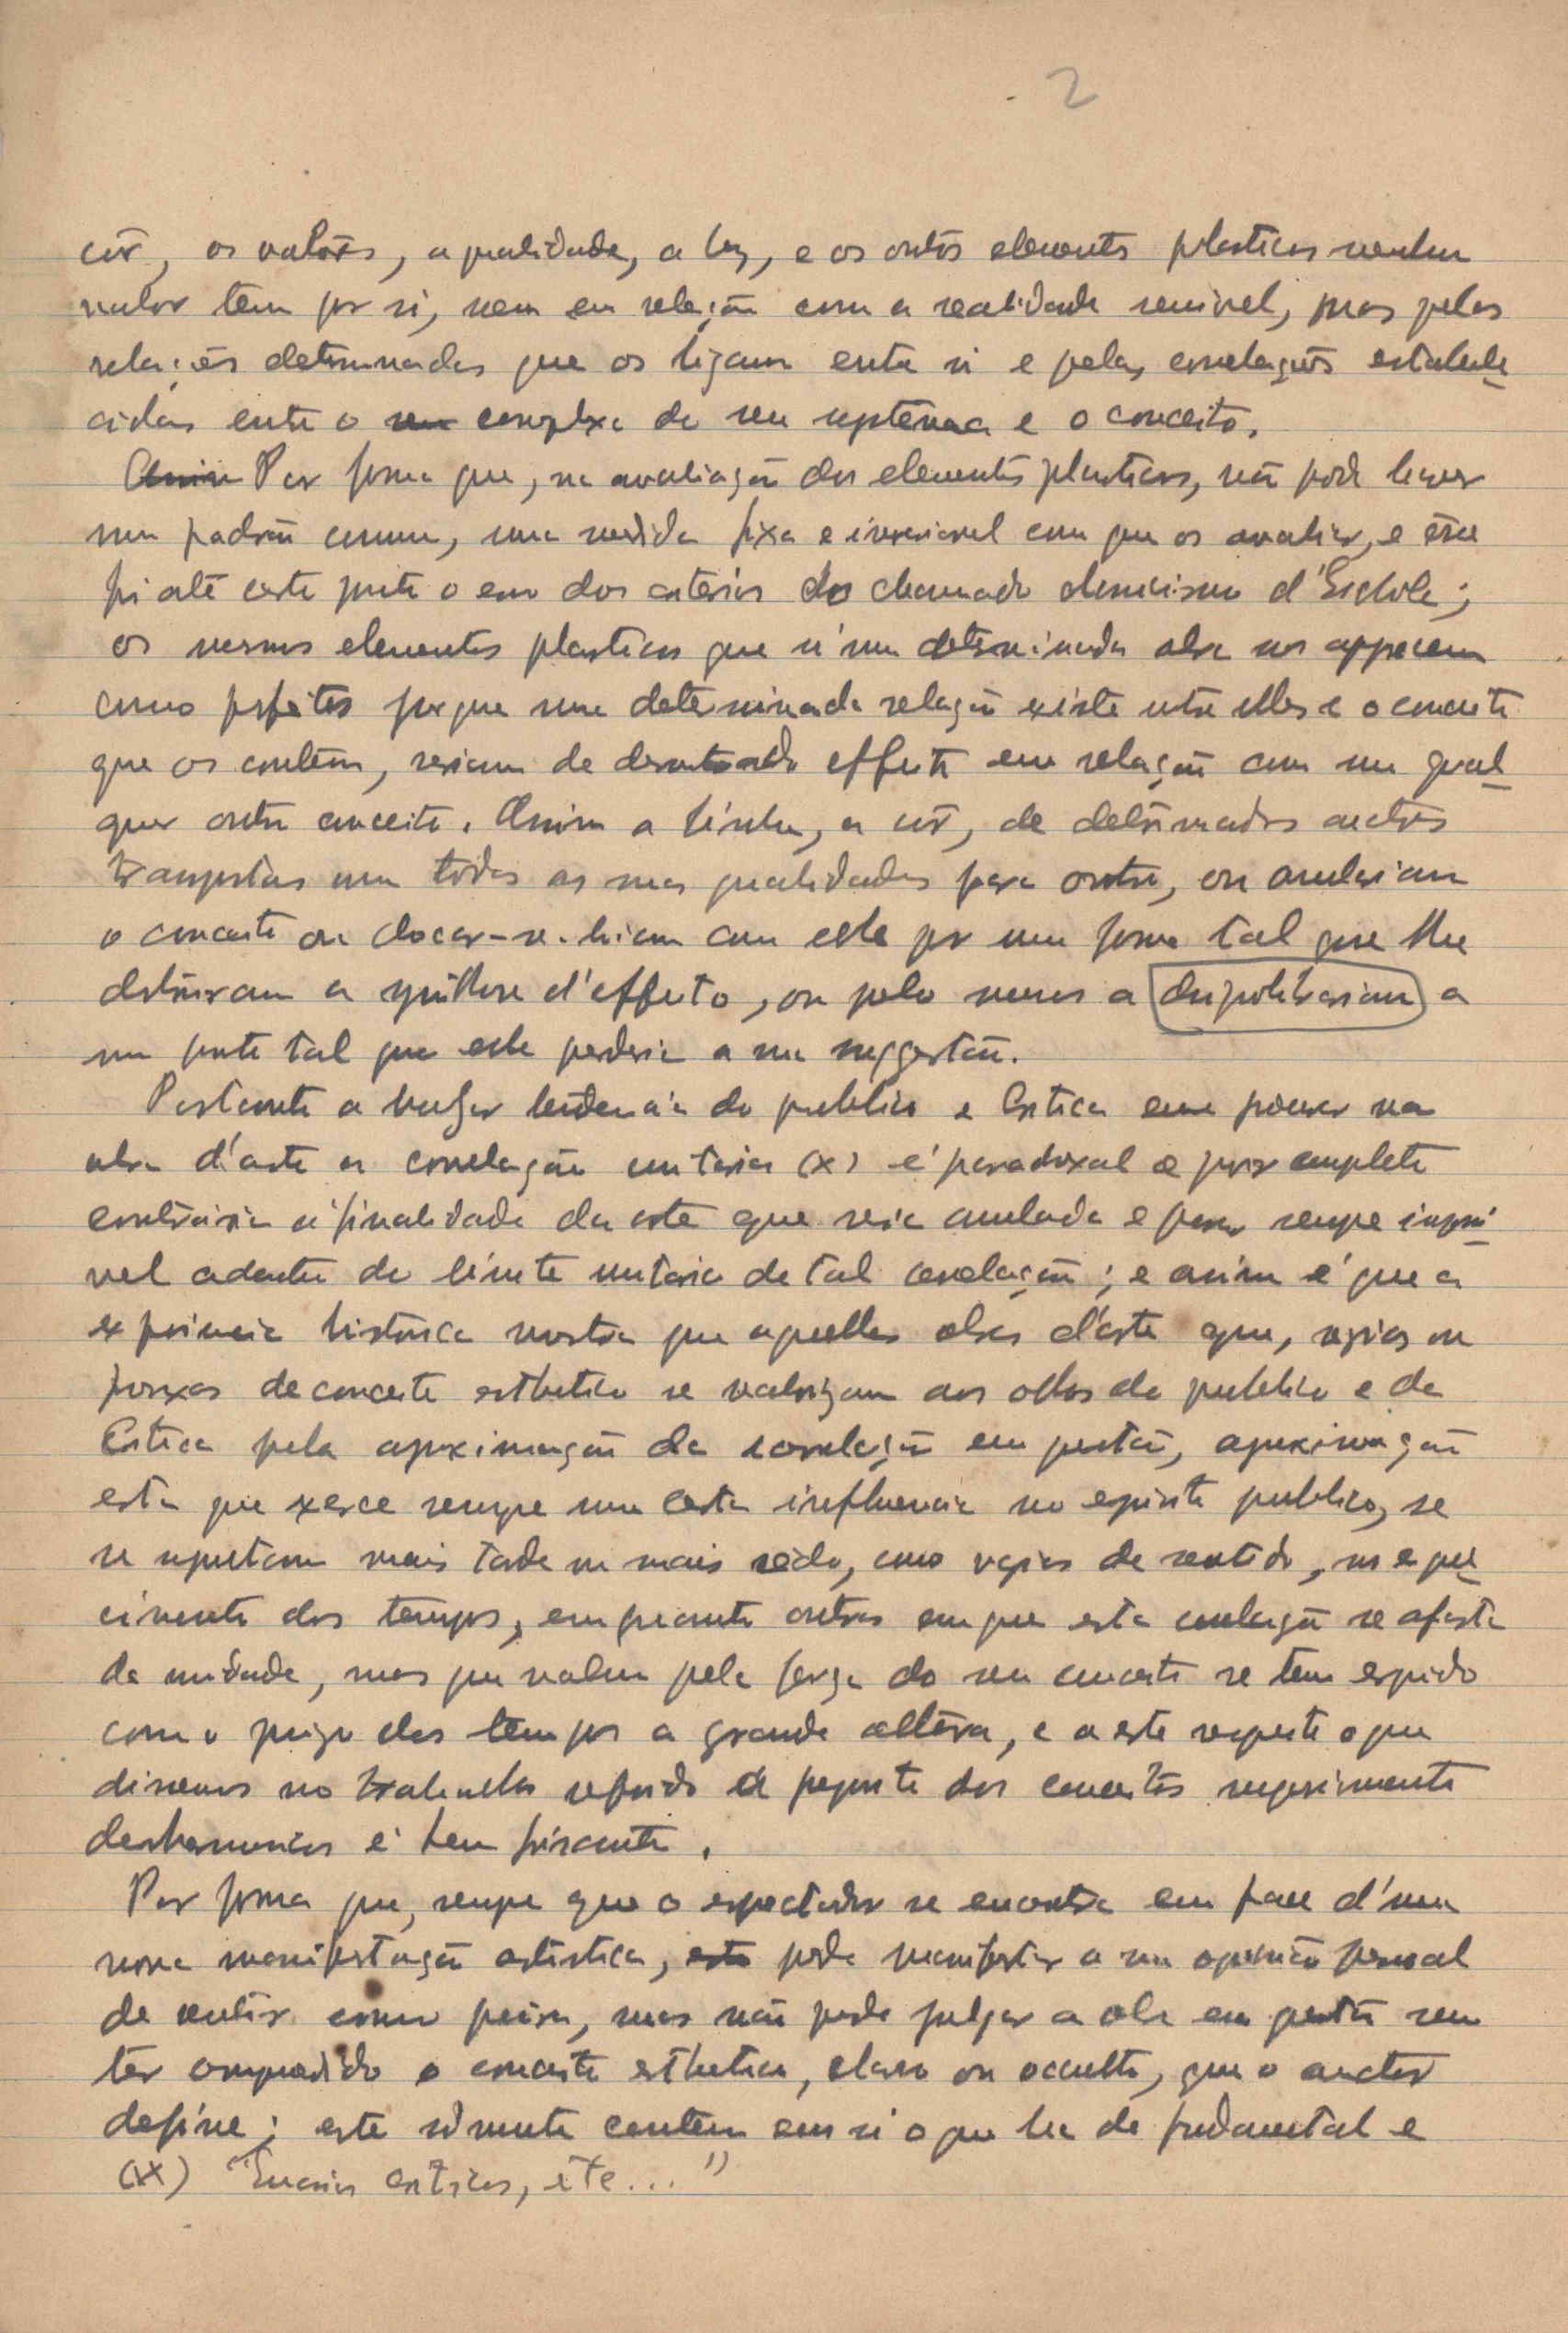 2
côr, os valores, a qualidade, a luz, e os outros elementos plasticos nenhum
valor tem por si, nem em relação com a realidade sensivel, mas pelas
relações determinadas que os ligam entre si e pelas correlações estabele-
cidas entre o complexo do seu systema e o conceito.
Assim Por forma que, na avaliação dos elementos plasticos, não pode haver
um padrão commum, uma medida fixa e invariavel com que os avaliar, e esse
foi até certo ponto o erro dos criterios do chamado classicismo d'Eschola;
os mesmos elementos plasticos que n'uma determinada obra nos apparecem
como perfeitos porque uma determinada relação existe entre elles e o conceito
que os contém, seriam de desastrado effeito em relação com um qual-
quer outro conceito. Assim a linha, a côr, de determinados auctores
transpostas com todas as suas qualidades para outro, ou anulariam
o conceito ou chocar-se-hiam com este por uma forma tal que lhe
destruiram a synthese d'effeito, ou pelo menos a a
um ponto tal que este perderia a sua suggestão.
Portanto a vulgar tendencia do publico e Critica em procurar na
obra d'arte a correlação unitaria (x) é paradoxal e por completo
contraria á finalidade da arte que seria anulada e para sempre impossi-
vel adentro do limite unitario de tal correlação; e assim é que a
experiencia historica mostra que aquellas obras d'arte que, vazias ou
frouxas de conceito esthetico se valorizam aos olhos do publico e da
Critica pela aproximação da correlação em questão, aproximação
esta que exerce sempre uma certa influencia no espirito publico, se
se reputam mais tarde ou mais cedo, como vazias de sentido, no esque-
cimento dos tempos, emquanto outras em que esta correlação se afasta
da unidade, mas que valem pela força do seu conceito se tem erguido
com o juizo dos tempos a grande altura, e a este respeito o que
dissemos no trabalho referido a proposito dos conceitos
desharmonicos é bem frisante.
Por forma que, sempre que o espectador se encontra em face d'uma
nova manifestação artistica, este pode manifestar a sua opinião pessoal
de sentir como queira, mas não pode julgar a obra em questão sem
ter comprehendido o conceito esthetico, claro ou occulto, que o auctor
define; este sómente contem em si o que ha de fundamental e
(x) "Ensaios criticos, etc..."